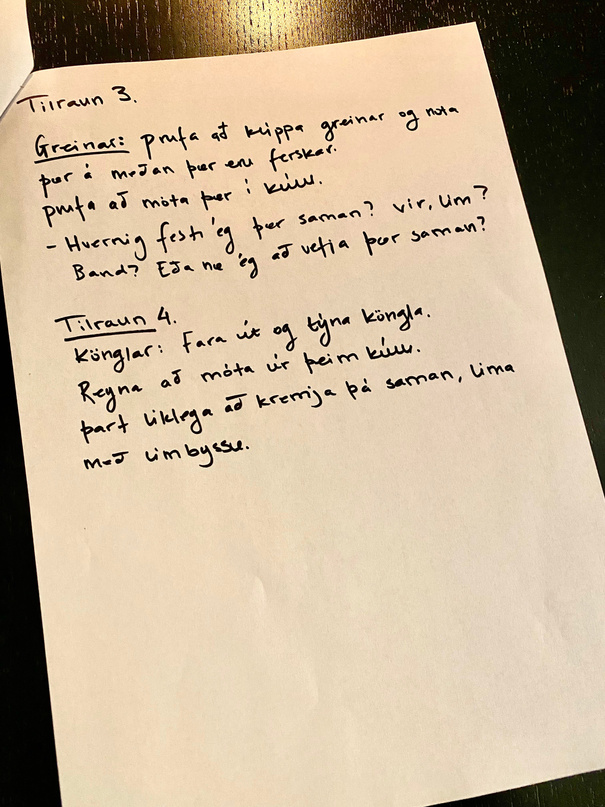 Tilraun 3.
Greinar: prufa að klippa greinar og nota
þær á meðan þær eru ferskar.
prufa að móta þær í kúlu.
- Hvernig festi ég þær saman? vír, lím?
Band? Eða næ ég að vefja þær saman?
Tilraun 4.
Könglar: Fara út og týna köngla.
Reyna að móta úr þeim kúlu.
þarf líklega að kremja þá saman, líma
með límbyssu.